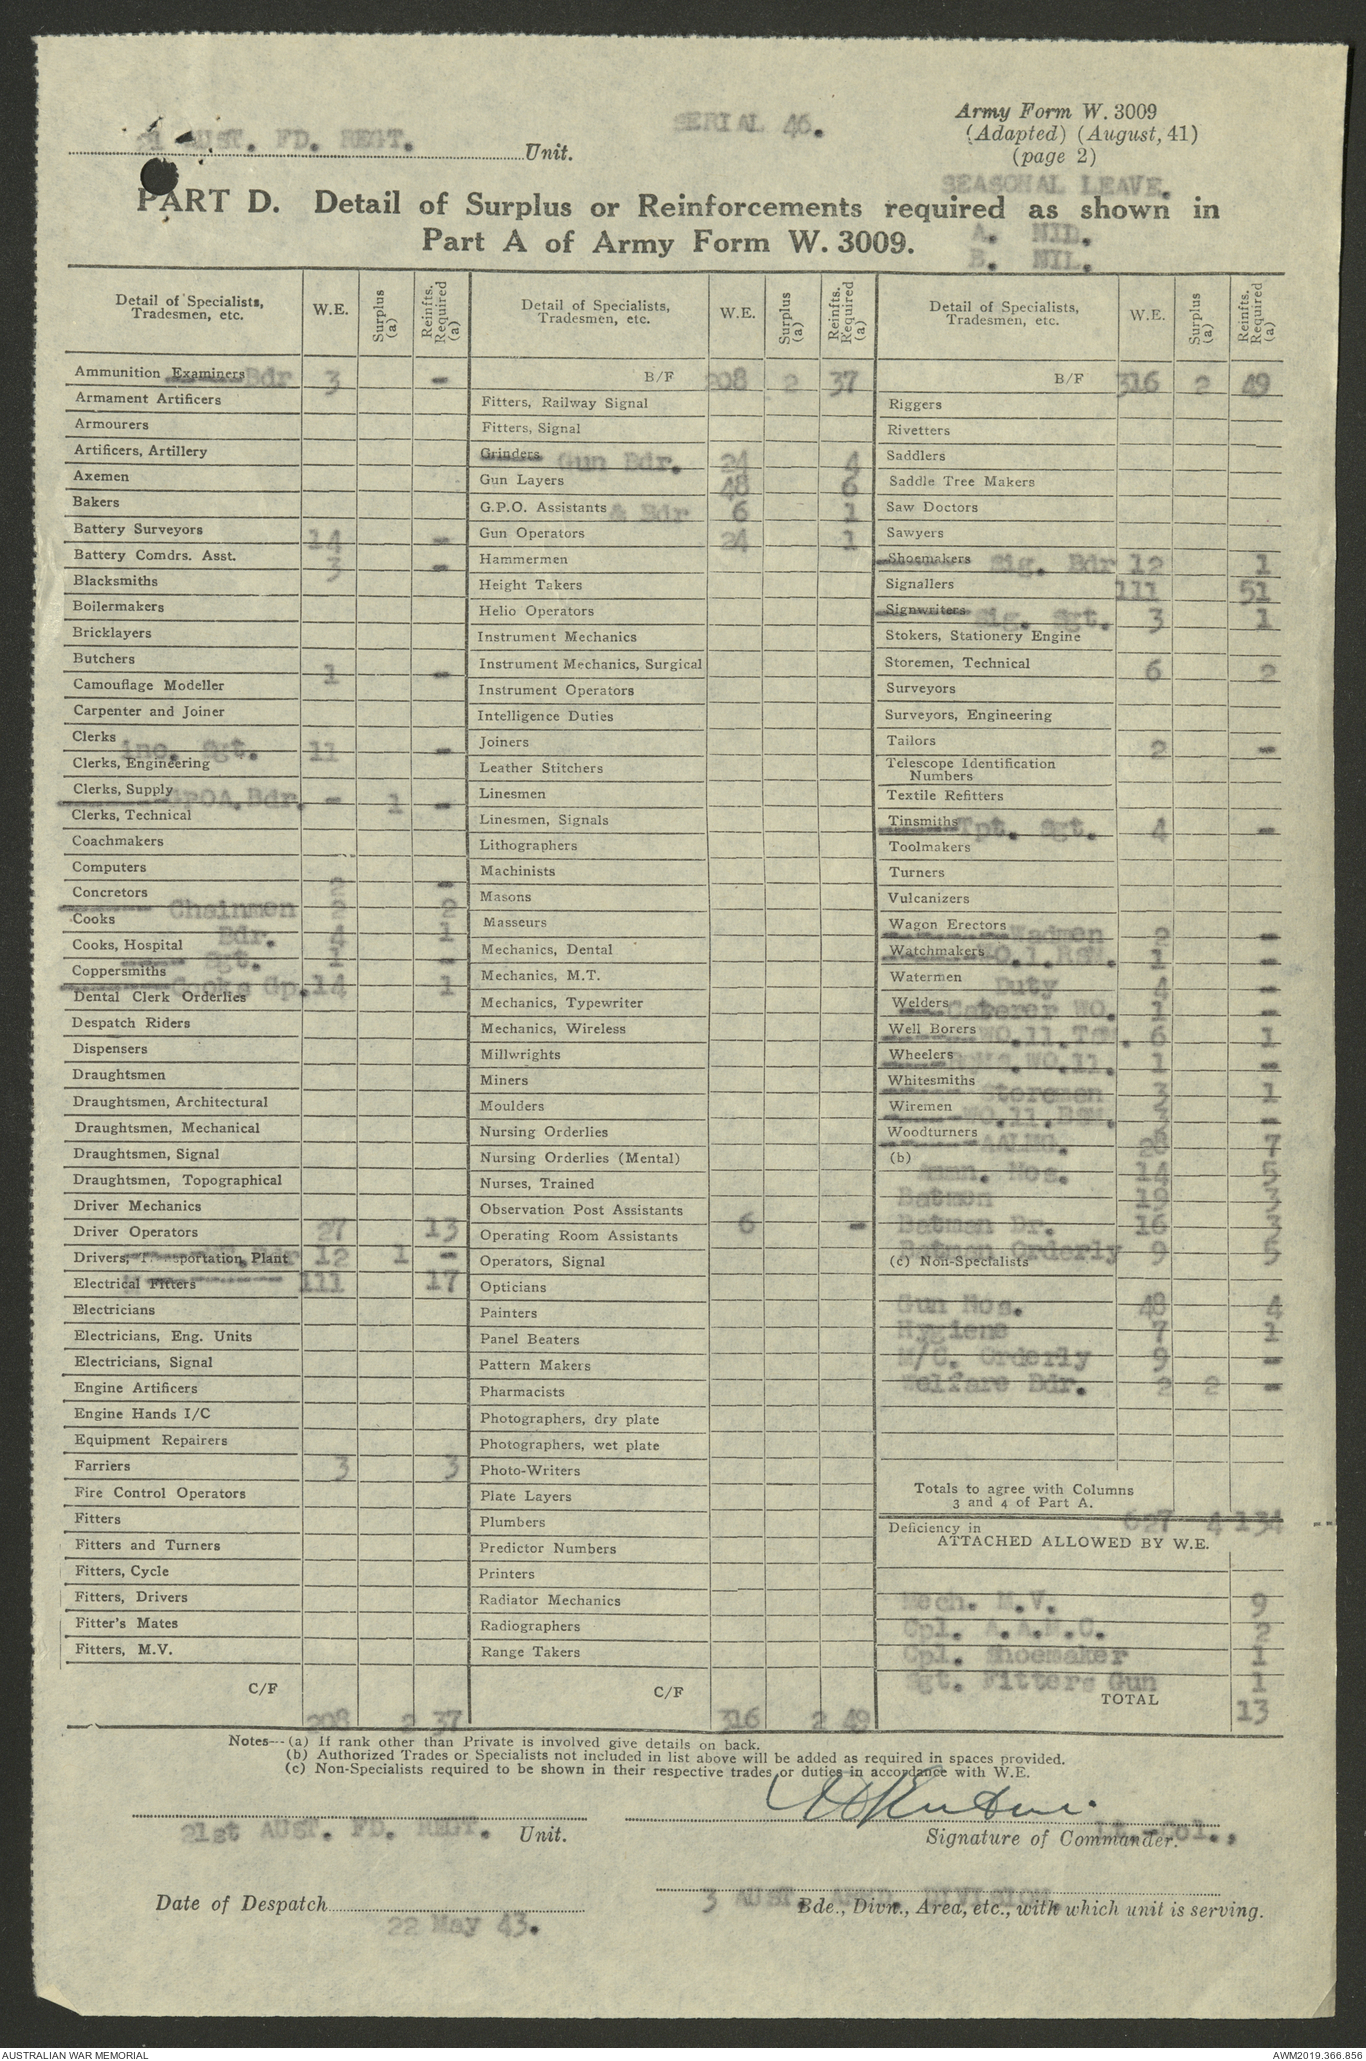 Army Form W. 3009
21 AUST. FD. REGT. Unit.
SERIAL 46.
(Adapted) (August, 41)
(page 2)
SEASONAL LEAVE.
PART D. Detail of Surplus or Reinforcements required as shown in
Part A of Army Form W. 3009.
A. NIL.
B. NIL.
Detail of Specialists, Tradesmen, etc. W.E. Surplus (a) Reinfts. Required (a)
Ammunition Examiners Bdr 3 -
Armament Artificers
Armourers
Artificers, Artillery
Axemen
Bakers
Battery Surveyors 14 -
Battery Comdrs. Asst. 3 -
Blacksmiths
Boilermakers
Bricklayers
Butchers 1 -
Camouflage Modeller
Carpenter and Joiner
Clerks inc. Sgt. 11 -
Clerks, Engineering
Clerks, Supply GPOA.Bdr. - 1 -
Clerks, Technical
Coachmakers
Computers 2 -
Concretors Chainmen 2 2
Cooks Bdr. 4 1
Cooks, Hospital Sgt. 1 -
Coppersmiths Cooks Gp. 14 1
Dental Clerk Orderlies
Despatch Riders
Dispensers
Draughtsmen
Draughtsmen, Architectural
Draughtsmen, Mechanical
Draughtsmen, Signal
Draughtsmen, Topographical
Driver Mechanics
Driver Operators 27 13
Drivers, Transportation Plant Bdr 12 1 -
Electrical Fitters 111 17
Electricians
Electricians, Eng. Units
Electricians, Signal
Engine Artificers
Engine Hands I/C
Equipment Repairers
Farriers 3 3
Fire Control Operators
Fitters
Fitters and Turners
Fitters, Cycle
Fitters, Drivers
Fitter's Mates
Fitters, M.V.
C/F 208 2 37
Detail of Specialists, Tradesmen, etc. W.E. Surplus (a) Reinfts. Required (a)
B/F 208 2 37
Fitters, Railway Signal
Fitters, Signal
Grinders Gun Bdr. 24 4
Gun Layers 48 6
G.P.O. Assistants & Bdr 6 1
Gun Operators 24 1
Hammermen
Height Takers
Helio Operators
Instrument Mechanics
Instrument Mechanics, Surgical
Instrument Operators
Intelligence Duties
Joiners
Leather Stitchers
Linesmen
Linesmen, Signals
Lithographers
Machinists
Masons
Masseurs
Mechanics, Dental
Mechanics, M.T.
Mechanics, Typewriter
Mechanics, Wireless
Millwrights
Miners
Moulders
Nursing Orderlies
Nursing Orderlies (Mental)
Nurses, Trained
Observation Post Assistants 6 -
Operating Room Assistants
Operators, Signal
Opticians
Painters
Panel Beaters
Pattern Makers
Pharmacists
Photographers, dry plate
Photographers, wet plate
Photo-Writers
Plate Layers
Plumbers
Predictor Numbers
Printers
Radiator Mechanics
Radiographers
Range Takers
C/F 316 2 49
Detail of Specialists, Tradesmen, etc. W.E. Surplus (a) Reinfts. Required (a)
B/F 316 2 49
Riggers
Rivetters
Saddlers
Saddle Tree Makers
Saw Doctors
Sawyers
Shoemakers Sig. Bdr 12 1
Signallers 111 51
Signwriters Sig. Sgt. 3 1
Stokers, Stationery Engine
Storemen, Technical 6 2
Surveyors
Surveyors, Engineering
Tailors 2 -
Telescope Identification Numbers
Textile Refitters
Tinsmiths Tpt. Sgt. 4 -
Toolmakers
Turners
Vulcanizers
Wagon Erectors Wadmen 2 -
Watchmakers WO.1.RSM. 1 -
Watermen Duty 4 -
Welders Caterer WO. 1 -
Well Borers WO.11.TSM. 6 1
Wheelers RQMS.WO.11. 1 -
Whitesmiths Storemen 3 1
Wiremen WO.11.BSM. 3 -
Woodturners AALMG. 28 7
(b) Amm. Nos. 14 5
Batmen 19 3
Batman Dr. 16 3
Batman Orderly 9 5
(c) Non-Specialists
Gun Nos. 48 4
Hygiene 7 1
M/C. Orderly 9 -
Welfare Bdr. 2 2 -
Totals to agree with Columns
3 and 4 of Part A.
627 4 134
Deficiency in
ATTACHED ALLOWED BY W.E.
Mech. M.V. 9
Cpl. A.A.M.C. 2
Cpl. Shoemaker 1
Sgt. Fitters Gun 1
TOTAL 13
Notes—(a) If rank other than Private is involved give details on back.
(b) Authorized Trades or Specialists not included in list above will be added as required in spaces provided.
(c) Non-Specialists required to be shown in their respective trades or duties in accordance with W.E.
21st AUST. FD. REGT. Unit.
Lt.-Col.,
Signature of Commander.
3 AUST. DIVISION.
Bde., Divn., Area, etc., with which unit is serving.
Date of Despatch
22 May 43.
AUSTRALIAN WAR MEMORIAL
AWM2019.366.856